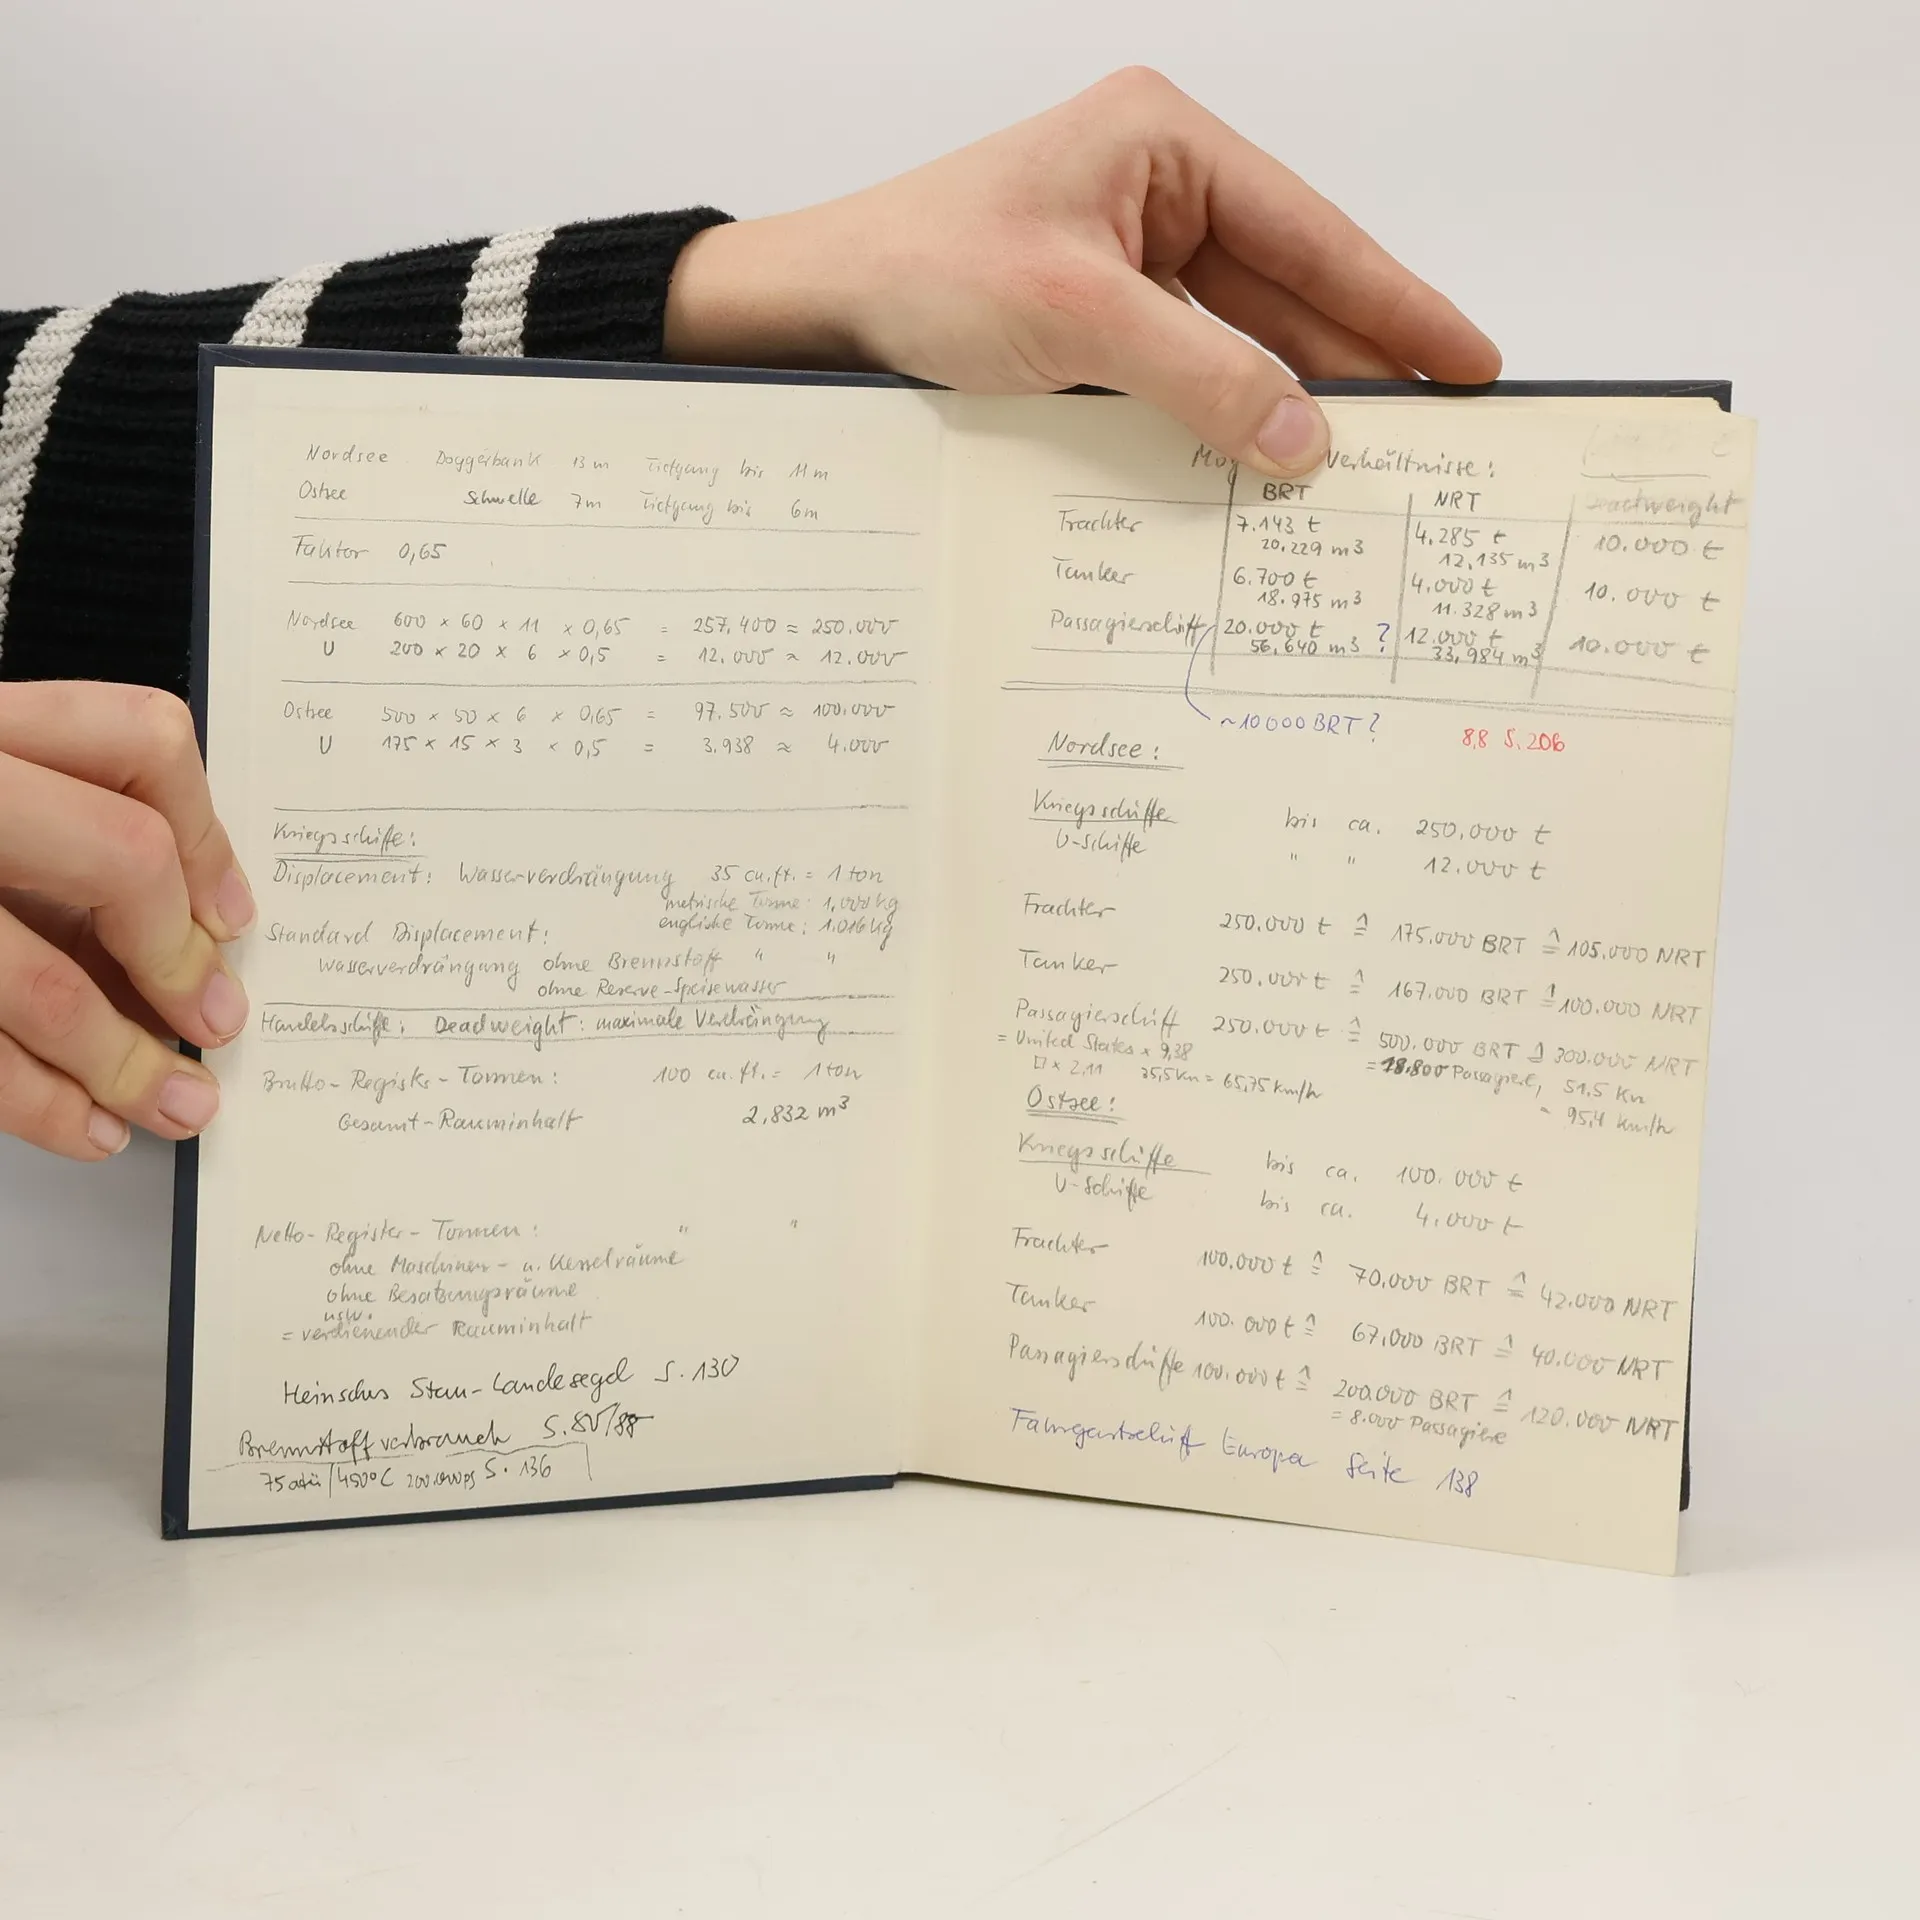 Nordsee Doggerbank 13 m Tiefgang bis 11 m
Ostsee Schwelle 7m Tiefgang bis 6m
Faktor 0,65
Nordsee 600 × 60 × 11 × 0,65 = 257.400 ≈ 250.000
U 200 × 20 × 6 × 0,5 = 12.000 ≈ 12.000
Ostsee 500 × 50 × 6 × 0,65 = 97.500 ≈ 100.000
U 175 × 15 × 3 × 0,5 = 3.938 ≈ 4.000
Kriegsschiffe:
Displacement: Wasserverdrängung 35 cu.ft. = 1 ton
metrische Tonne: 1.000 kg
englische Tonne: 1.016 kg
Standard Displacement:
Wasserverdrängung ohne Brennstoff " "
ohne Reserve-Speisewasser
Handelsschiffe: Deadweight: maximale Verdrängung
Brutto-Register-Tonnen: 100 cu.ft. = 1 ton
Gesamt-Rauminhalt 2,832 m³
Netto-Register-Tonnen: " "
ohne Maschinen- u. Kesselräume
ohne Besatzungsräume
usw.
= verdienender Rauminhalt
Heinsches Stau-Landesegel S. 130
Brennstoffverbrauch S. 80/88
75 atü/450°C 200.000 PS S. 136
Verhältnisse:
BRT NRT Deadweight
Frachter 7.143 t 4.285 t 10.000 t
20.229 m³ 12.135 m³
Tanker 6.700 t 4.000 t 10.000 t
18.975 m³ 11.328 m³
Passagierschiff 20.000 t ? 12.000 t 10.000 t
56.640 m³ 33.984 m³
~10000 BRT? 8,8 S. 206
Nordsee:
Kriegsschiffe bis ca. 250.000 t
U-Schiffe " " 12.000 t
Frachter 250.000 t ≙ 175.000 BRT ≙ 105.000 NRT
Tanker 250.000 t ≙ 167.000 BRT ≙ 100.000 NRT
Passagierschiff 250.000 t ≙ 500.000 BRT ≙ 300.000 NRT
= United States × 9,38 = 18.800 Passagiere, 51,5 Kn
□ × 2,11 35,5 Kn = 65,75 km/h ~ 95,4 km/h
Ostsee:
Kriegsschiffe bis ca. 100.000 t
U-Schiffe bis ca. 4.000 t
Frachter 100.000 t ≙ 70.000 BRT ≙ 42.000 NRT
Tanker 100.000 t ≙ 67.000 BRT ≙ 40.000 NRT
Passagierschiffe 100.000 t ≙ 200.000 BRT ≙ 120.000 NRT
= 8.000 Passagiere
Fahrgastschiff Europa Seite 138